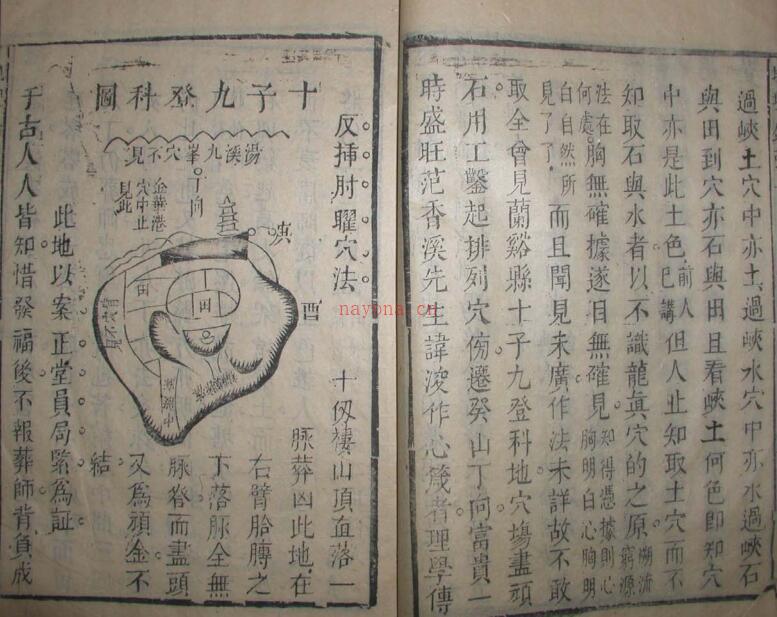 過峽土穴中亦土過峽水穴中亦水過峽石
與田到穴亦石與田且看峽土何色即知穴
中亦是此土色前人已講但人止知取土穴而不
知取石與水者以不識龍眞穴的之原溯流窮源
法在胸無確據遂目無確見知得憑據則心胸明白心胸明
何處
白自然所見了了而且聞見未廣作法未詳故不敢
取全曾見蘭谿縣十子九登科地穴塲盡頑
石用工鑿起排列穴傍遷癸山丁向富貴一
時盛旺范香溪先生諱浚作心箴者理學傳
十子九登科圖
反挿肘曜穴法
湯溪九峯穴不見
丁向
金華港穴中止見此
酉
田
田
穴不見
十仭褸山頂直落一
脉葬凶此地在
右臂胎膊之
下落脉全無
脉脊而盡頭
又爲頑金不
結
此地以案正堂員局緊爲証
于古人人皆知惜發福後不報葬師背負成
nayona.cn